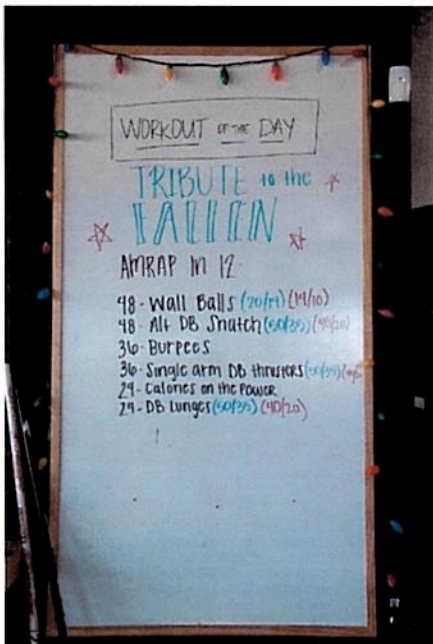 WORKOUT OF THE DAY
TRIBUTE to the
FALLEN
AMRAP IN 12
48 - Wall Balls (20/14) (14/10)
48 - Alt DB Snatch (50/35) (40/20)
36 - Burpees
36 - Single arm DB thrusters (50/35)
24 - Calories on the POWER
24 - DB Lunges (50/35) (40/20)